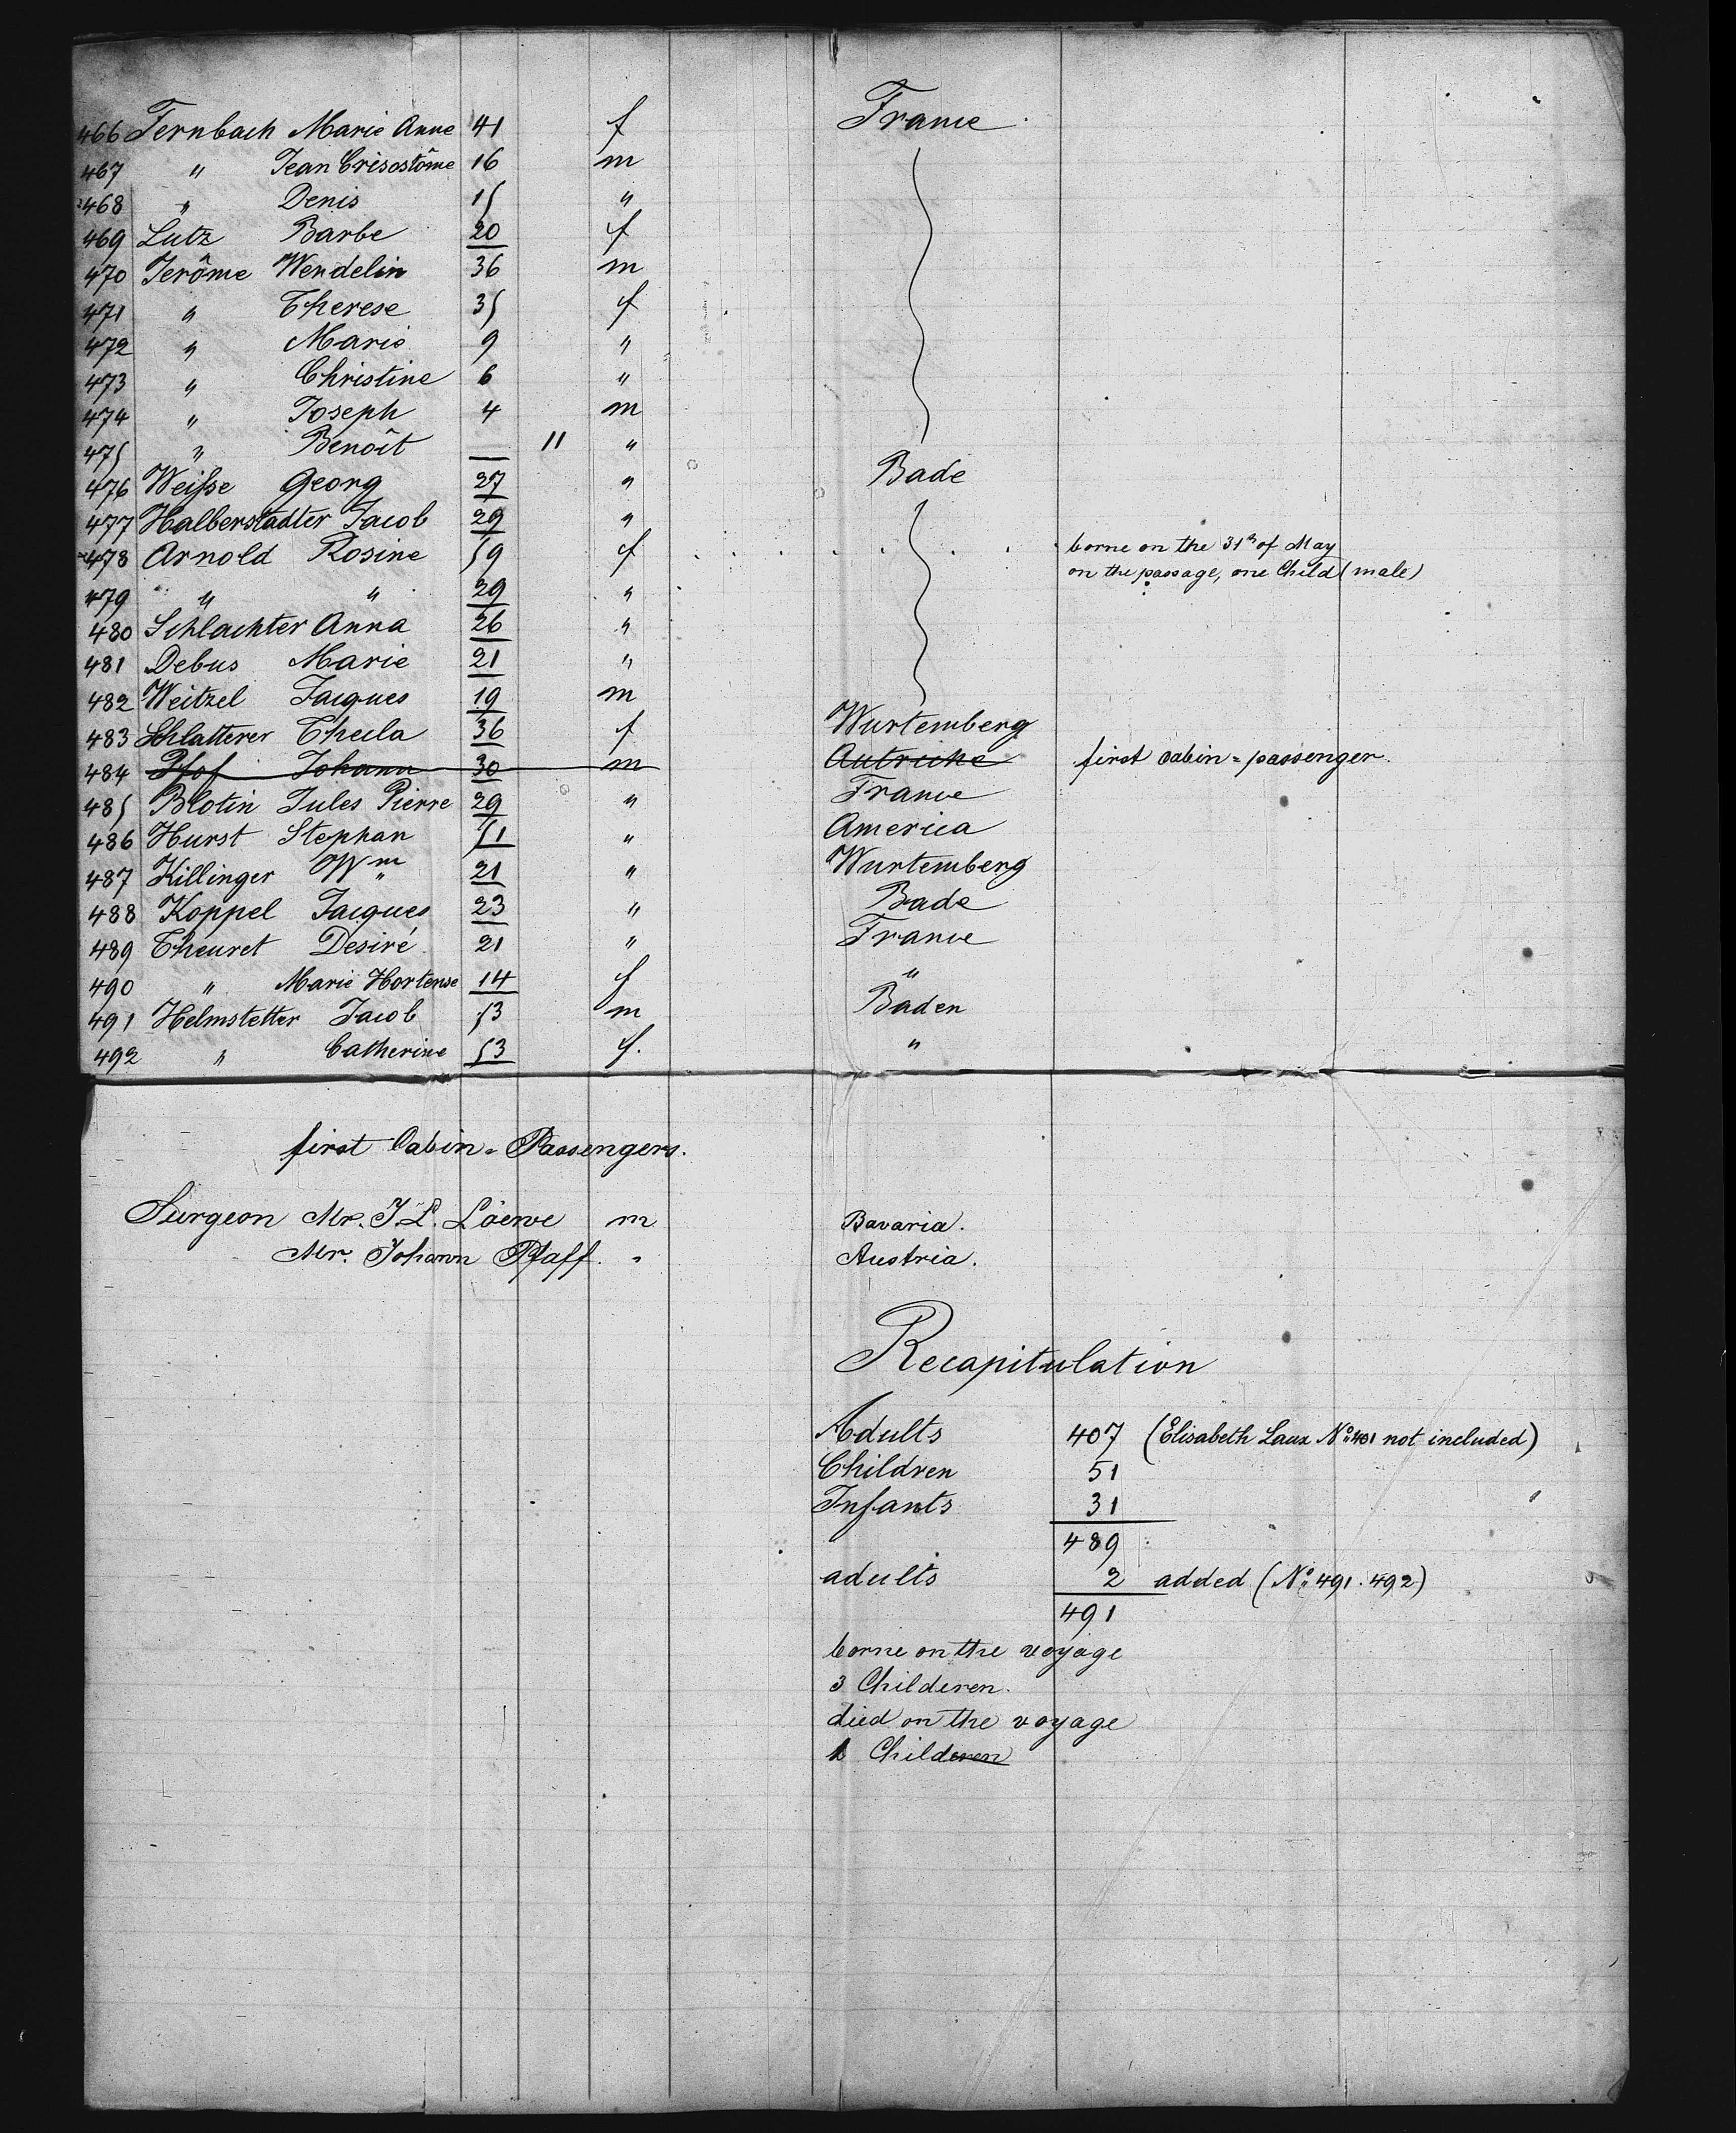 466 Fernbach Marie Anne 41 f France
467 " Jean Crisostôme 16 m
468 " Denis 15 "
469 Lutz Barbe 20 f
470 Jerôme Wendelin 36 m
471 " Therese 35 f
472 " Marie 9 "
473 " Christine 6 "
474 " Joseph 4 m
475 " Benoît — 11 "
476 Weisse Georg 27 " Bade
477 Halberstadter Jacob 29 "
478 Arnold Rosine 59 f borne on the 31th of May
on the passage, one Child (male)
479 " " 29 "
480 Schlachter Anna 26 "
481 Debus Marie 21 "
482 Weitzel Jacques 19 m
483 Schlatterer Thecla 36 f Wurtemberg
484 Pfof Johann 30 m Autriche first cabin=passenger.
485 Blotin Jules Pierre 29 " France
486 Hurst Stephan 51 " America
487 Killinger Wm 21 " Wurtemberg
488 Koppel Jacques 23 " Bade
489 Theuret Desiré 21 " France
490 " Marie Hortense 14 f "
491 Helmstetter Jacob 53 m Baden
492 " Catherine 53 f. "
first Cabin=Passengers.
Surgeon Mr. J. L. Löewe m Bavaria.
Mr. Johann Pfaff. " Austria.
Recapitulation
Adults 407 (Elisabeth Laux No 401 not included)
Children 51
Infants 31
489
adults 2 added (No 491. 492)
491
borne on the voyage
3 Childeren.
died on the voyage
1 Childeren